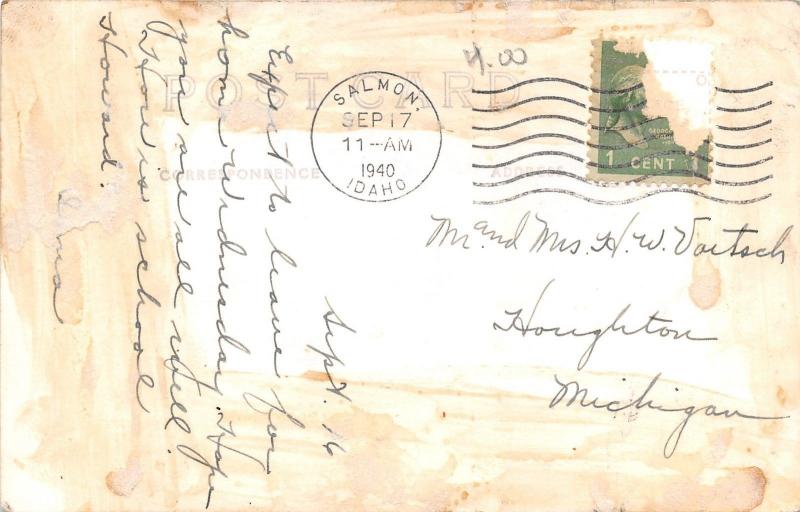 4.00
POST CARD
SALMON,
SEP 17
11--AM
1940
IDAHO
GEORGE
1 CENT
CORRESPONDENCE
ADDRESS
Mr. and Mrs. H. W. Voetsch
Houghton
Michigan
Sept. 16
Expect to leave for
home wednesday. Hope
you are all well.
How is school
Howard.